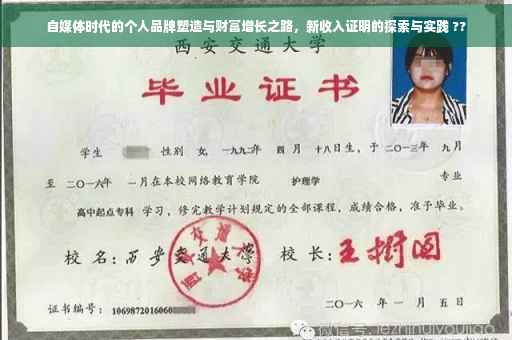 自媒体时代的个人品牌塑造与财富增长之路，新收入证明的探索与实践 ??
西安交通大学
毕业证书
学生 性别 女, 一九九二年 四月 十八日生, 于二〇一三年 九月
至 二〇一六年 一月在本校网络教育学院 护理学 专业
高中起点专科 学习, 修完教学计划规定的全部课程, 成绩合格, 准予毕业。
校名: 西安交通大学 校长: 王树国
西安交通大学
证书编号: 1069872016060
二〇一六年 一月 五日
微信号: lezhihuiyoujiao